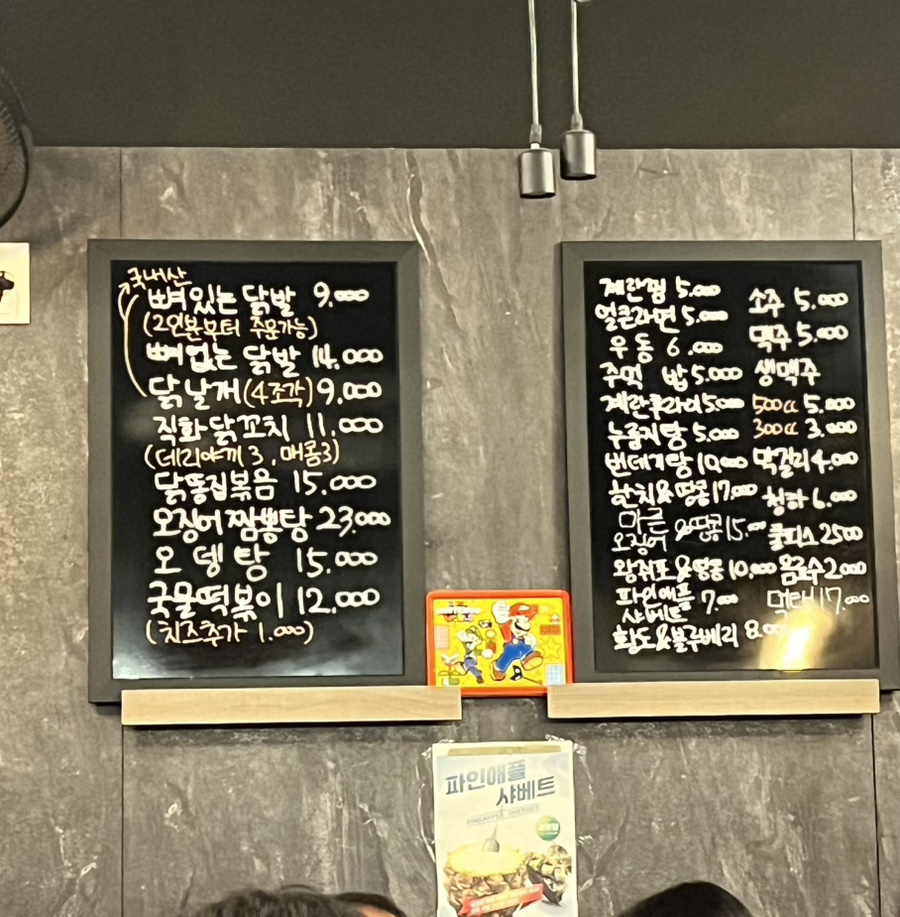 국내산
뼈있는 닭발 9.000
(2인분부터 주문가능)
뼈없는 닭발 14.000
닭날개(4조각) 9.000
직화닭꼬치 11.000
(데리야끼 3, 매콤3)
닭똥집볶음 15.000
오징어짬뽕탕 23.000
오뎅탕 15.000
국물떡볶이 12.000
(치즈추가 1.000)
계란찜 5.000
얼큰라면 5.000
우동 6.000
주먹밥 5.000
계란후라이 5.000
누룽지탕 5.000
번데기탕 10.000
한치&땅콩 17.000
마른
오징어 &땅콩 15.000
왕쥐포&땅콩 10.000
파인애플
샤베트 7.000
황도&블루베리 8.000
소주 5.000
맥주 5.000
생맥주
500cc 5.000
300cc 3.000
막걸리 4.000
청하 6.000
쿨피스 2500
음료수 2.000
먹태 17.000
파인애플
샤베트
PINEAPPLE SHERBET